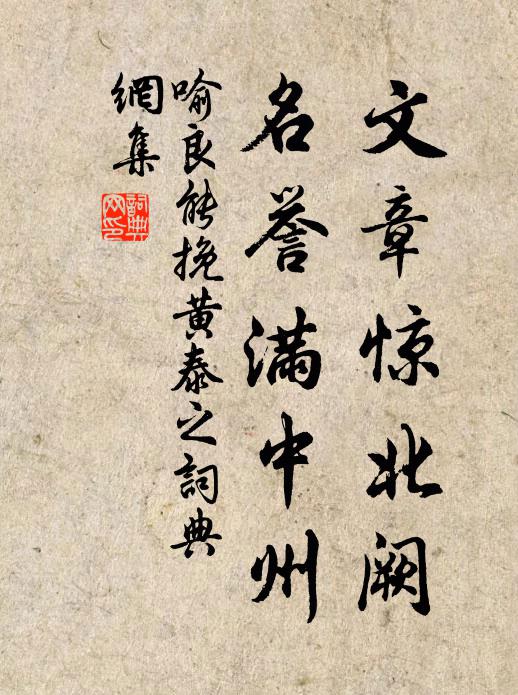 文章惊北阙
名誉满中州
喻良能挽黄泰之詞典
網集
詞典
网印